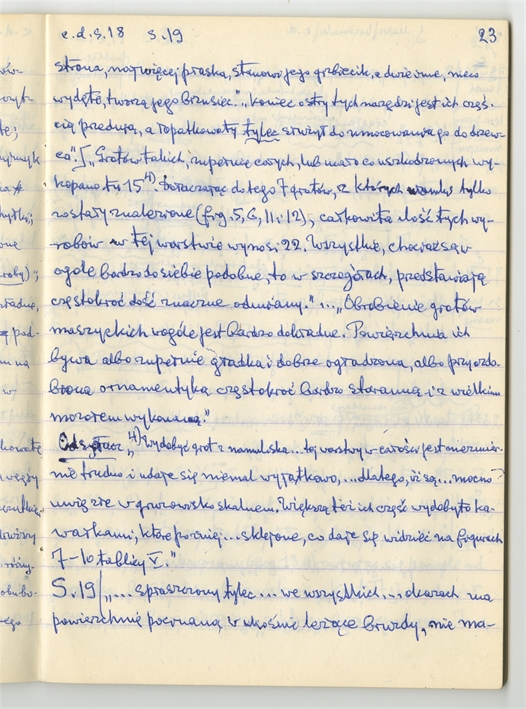 c.d.s.18 s.19 23
strona, najwięcej płaska, stanowi jego grzbiecik, a dwie inne, nieco
wydęte, tworzą jego brzusiec." „Koniec ostry tych narzędzi jest ich częś-
cią przednią, a łopatkowaty tylec służył do umocowania go do drzew-
ca". [„Grotów takich, zupełnie całych, lub mało co uszkodzonych wy-
kopano tu 15 4). Dołączając do tego 7 grotów, z których ułamki tylko
zostały znalezione (fig. 5, 6, 11 i 12), całkowita ilość tych wy-
robów w tej warstwie wynosi 22. Wszystkie, chociaż są w
ogóle bardzo do siebie podobne, to w szczegółach, przedstawiają
częstokroć dość znaczne odmiany." ... „Obrobienie grotów
maszyckich wogóle jest bardzo dokładne. Powierzchnia ich
bywa albo zupełnie gładka i dobrze ogładzona, albo przyozdo-
biona ornamentyką częstokroć bardzo staranną i z wielkim
mozołem wykonaną."
4) Wydobyć grot z namuliska ... tej warstwy w całości jest niezmier-
nie trudno i udaje się niemal wyjątkowo, ... dlatego, iż są ... mocno
uwięzłe w gruzowisku skalnem. Większą też ich część wydobyto ka-
wałkami, które później ... sklejone, co daje się widzieć na figurach
7-10 tablicy V."
S. 19 „... spłaszczony tylec ... we wszystkich ... okazach ma
powierzchnię porznaną w ukośnie leżące bruzdy, nie ma-